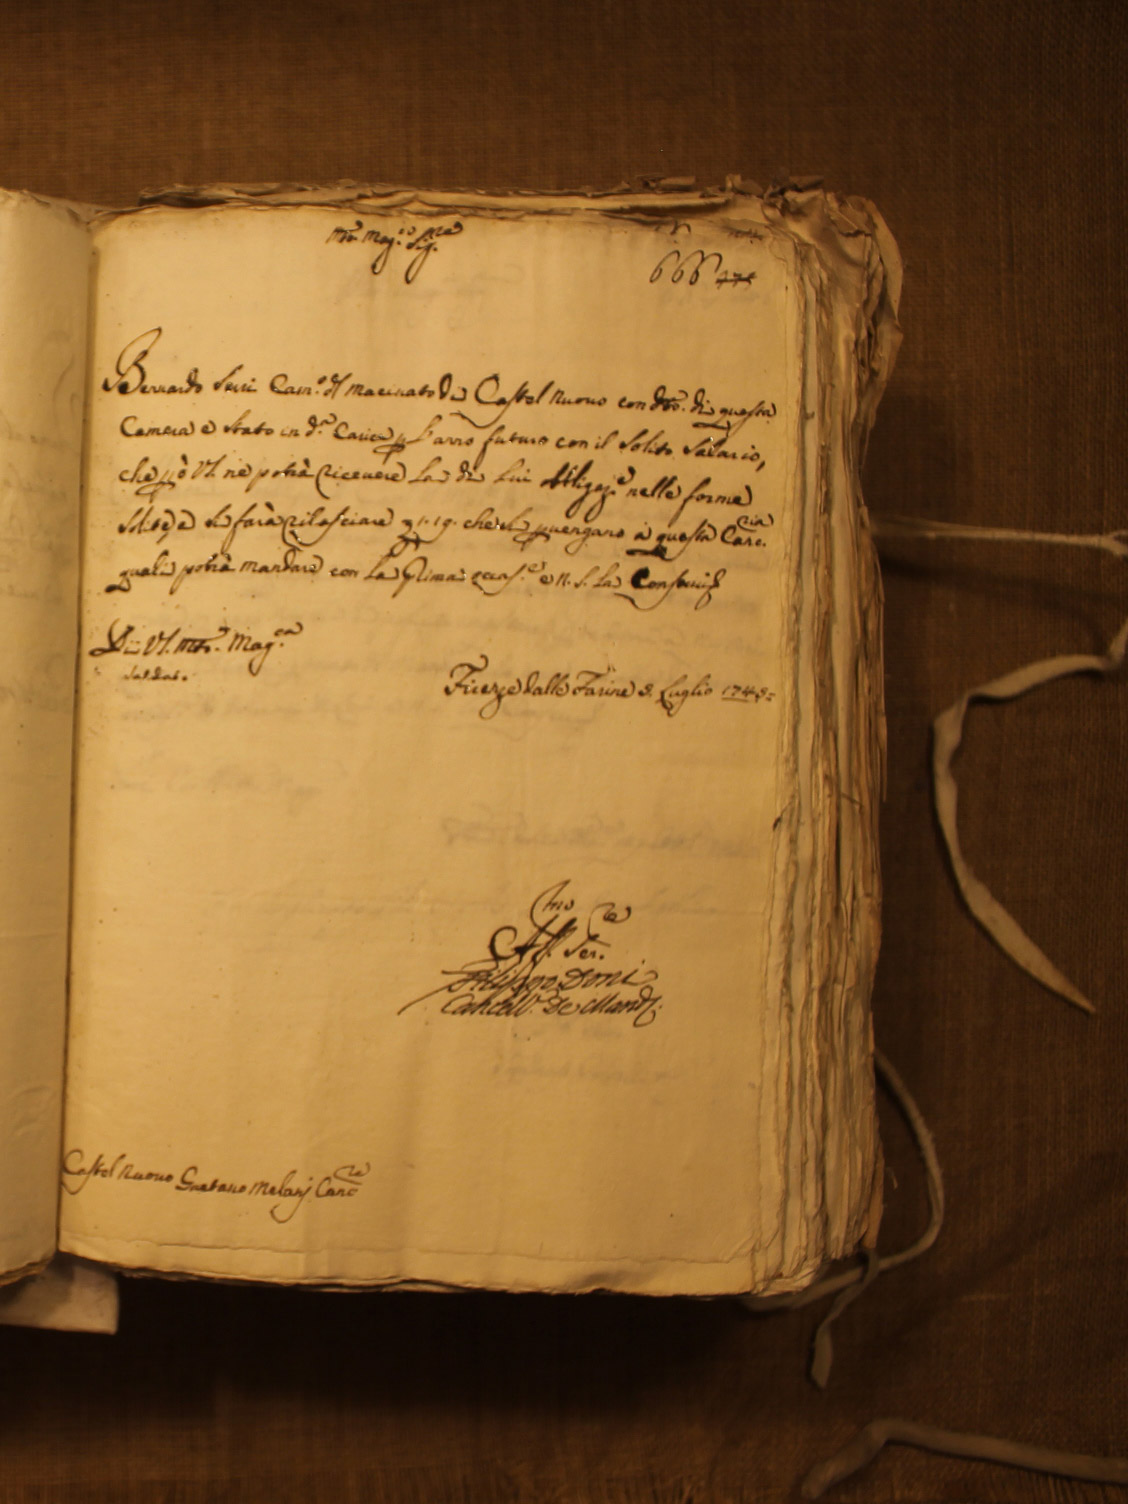 Mto. Mag.co Sig.re
666 475
Bernardo Cam.o dl macinato di Castel nuovo con dto. di questa
Camera è stato in d.a Carica p l'anno futuro con il solito salario,
che però VS. ne potrà ricevere la di lui obligaz.e nelle forme
solite, e si farà rilasciare 1.19. che si pvengano à questa Canc.ria
quali potrà mandare con la prima occas.e e N. S. la
Di VS. Mto. Mag.ca
Firenze dalle Farine 8. Luglio 174
Aff. Ser.re
Filippo Doni
Cancell.
Castel nuovo Gaetano Melani Canc.re